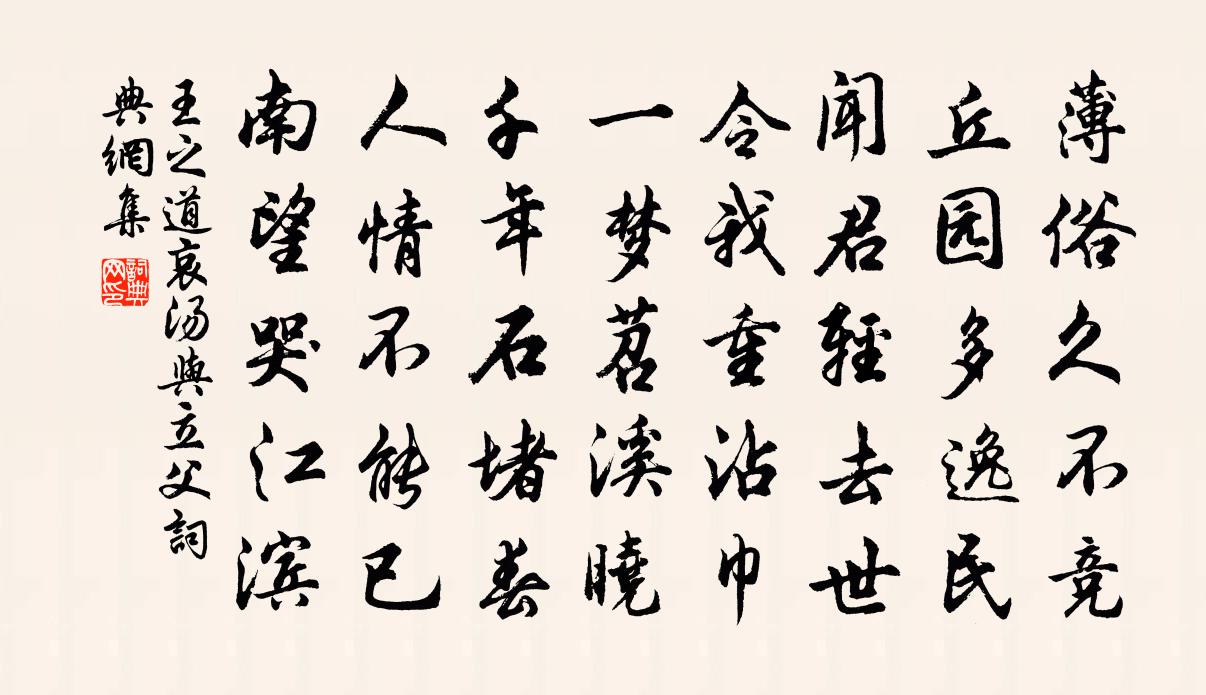 薄俗久不竞
丘园多逸民
闻君轻去世
令我重沾巾
一梦苕溪晓
千年石堵春
人情不能已
南望哭江滨
王之道哀汤與立父詞
典網集
詞典
网印